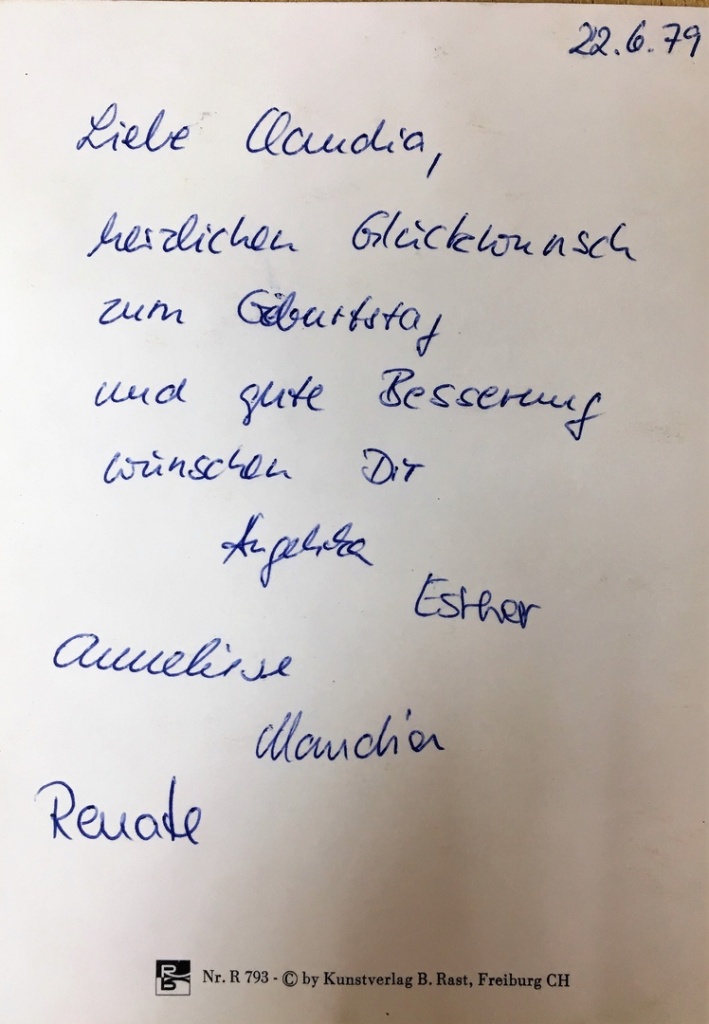 22.6.79
Liebe Claudia,
herzlichen Glückwunsch
zum Geburtstag
und gute Besserung
wünschen Dir
Angelika
Esther
Anneliese
Claudia
Renate
RB Nr. R 793 - © by Kunstverlag B. Rast, Freiburg CH